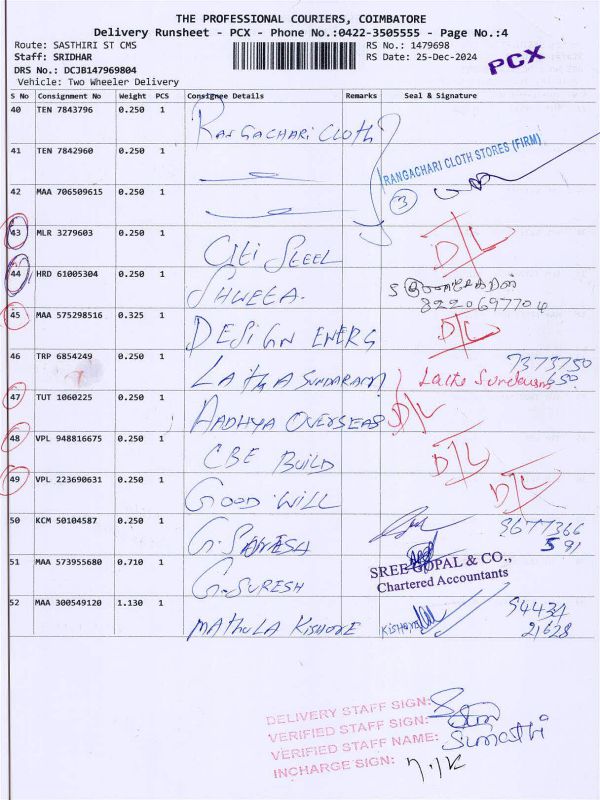 THE PROFESSIONAL COURIERS, COIMBATORE
Delivery Runsheet - PCX - Phone No.:0422-3505555 - Page No.:4
Route: SASTHIRI ST CMS RS No.: 1479698
Staff: SRIDHAR RS Date: 25-Dec-2024
DRS No.: DCJB147969804
Vehicle: Two Wheeler Delivery
PCX
S No Consignment No Weight PCS Consignee Details Remarks Seal & Signature
40 TEN 7843796 0.250 1 RANGACHARI CLOTH
41 TEN 7842960 0.250 1
RANGACHARI CLOTH STORES (FIRM)
42 MAA 706509615 0.250 1 3
43 MLR 3279603 0.250 1 Citi STEEL D/L
44 HRD 61005304 0.250 1 SHWETA. 8220697704
45 MAA 575298516 0.325 1 DESIGN ENERG D/L
46 TRP 6854249 0.250 1 LAITHA SUNDARAM 7373750
650
47 TUT 1060225 0.250 1 AADHYA OVERSEAS D/L
48 VPL 948816675 0.250 1 CBE BUILD D/L
49 VPL 223690631 0.250 1 GOOD WILL D/L
50 KCM 50104587 0.250 1 9677366
591
51 MAA 573955680 0.710 1 G.SURESH
SREE GOPAL & CO.,
Chartered Accountants
52 MAA 300549120 1.130 1 MATHULA KISHORE KISHORE 94434
21628
DELIVERY STAFF SIGN:
VERIFIED STAFF SIGN:
VERIFIED STAFF NAME: Sumathi
INCHARGE SIGN: